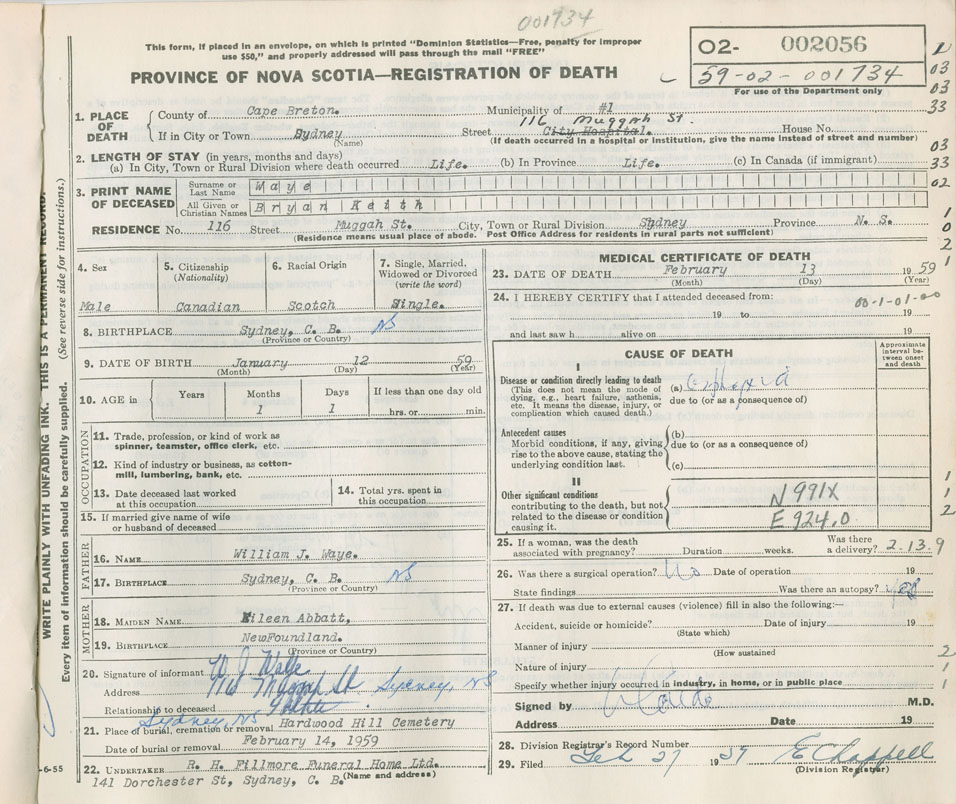 001734
This form, if placed in an envelope, on which is printed "Dominion Statistics—Free, penalty for improper
use $50," and properly addressed will pass through the mail "FREE"
PROVINCE OF NOVA SCOTIA—REGISTRATION OF DEATH
O2- 002056
59-02-001734
For use of the Department only
1. PLACE OF DEATH
County of Cape Breton. Municipality of #1
If in City or Town Sydney (Name) Street 116 Muggah St. City Hospital. House No.
(If death occurred in a hospital or institution, give the name instead of street and number)
2. LENGTH OF STAY (in years, months and days)
(a) In City, Town or Rural Division where death occurred Life. (b) In Province Life. (c) In Canada (if immigrant)
3. PRINT NAME OF DECEASED
Surname or Last Name Waye
All Given or Christian Names Bryan Keith
RESIDENCE No. 116 Street Muggah St. City, Town or Rural Division Sydney Province N. S.
(Residence means usual place of abode. Post Office Address for residents in rural parts not sufficient)
4. Sex
Male
5. Citizenship (Nationality)
Canadian
6. Racial Origin
Scotch
7. Single, Married, Widowed or Divorced (write the word)
Single.
8. BIRTHPLACE Sydney, C. B. NS
(Province or Country)
9. DATE OF BIRTH January 12 59
(Month) (Day) (Year)
10. AGE in
Years Months Days If less than one day old
1 1 hrs. or min.
OCCUPATION
11. Trade, profession, or kind of work as
spinner, teamster, office clerk, etc.
12. Kind of industry or business, as cotton-
mill, lumbering, bank, etc.
13. Date deceased last worked
at this occupation
14. Total yrs. spent in
this occupation
15. If married give name of wife
or husband of deceased
FATHER
16. NAME William J. Waye.
17. BIRTHPLACE Sydney, C. B. NS
(Province or Country)
MOTHER
18. MAIDEN NAME Eileen Abbatt,
19. BIRTHPLACE NewFoundland.
(Province or Country)
20. Signature of informant W J Waye
Address 116 Muggah St Sydney, NS
Relationship to deceased Father.
Sydney, NS
21. Place of burial, cremation or removal Hardwood Hill Cemetery
Date of burial or removal February 14, 1959
22. UNDERTAKER R. H. Fillmore Funeral Home Ltd.
141 Dorchester St, Sydney, C. B. (Name and address)
-6-55
WRITE PLAINLY WITH UNFADING INK. THIS IS A PERMANENT RECORD.
Every item of information should be carefully supplied. (See reverse side for instructions.)
MEDICAL CERTIFICATE OF DEATH
23. DATE OF DEATH February 13 1959
(Month) (Day) (Year)
24. I HEREBY CERTIFY that I attended deceased from:
00-1-01-00
19 to 19
and last saw h alive on 19
CAUSE OF DEATH
Approximate interval between onset and death
I
Disease or condition directly leading to death
(This does not mean the mode of dying, e.g., heart failure, asthenia, etc. It means the disease, injury, or complication which caused death.)
(a)
due to (or as a consequence of)
Antecedent causes
Morbid conditions, if any, giving rise to the above cause, stating the underlying condition last.
(b)
due to (or as a consequence of)
(c)
II
Other significant conditions
contributing to the death, but not related to the disease or condition causing it.
N 991X
E 924.0
25. If a woman, was the death associated with pregnancy? Duration weeks. Was there a delivery? 2.13.9
26. Was there a surgical operation? No Date of operation 19
State findings Was there an autopsy? yes
27. If death was due to external causes (violence) fill in also the following:—
Accident, suicide or homicide? Date of injury 19
(State which)
Manner of injury
(How sustained
Nature of injury
Specify whether injury occurred in industry, in home, or in public place
Signed by M.D.
Address Date 19
28. Division Registrar's Record Number
29. Filed Feb 27 1959 E Chappell
(Division Registrar)
03
03
33
03
33
02
1
0
2
1
1
1
2
2
1
1